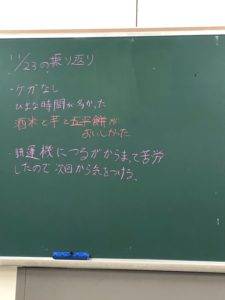 11/23の乗り返り
・ケガなし
ひまな時間が多かった
酒米と芋と五平餅が
おいしかった
・運機につるがからまって苦労
したので次回から気をつける。